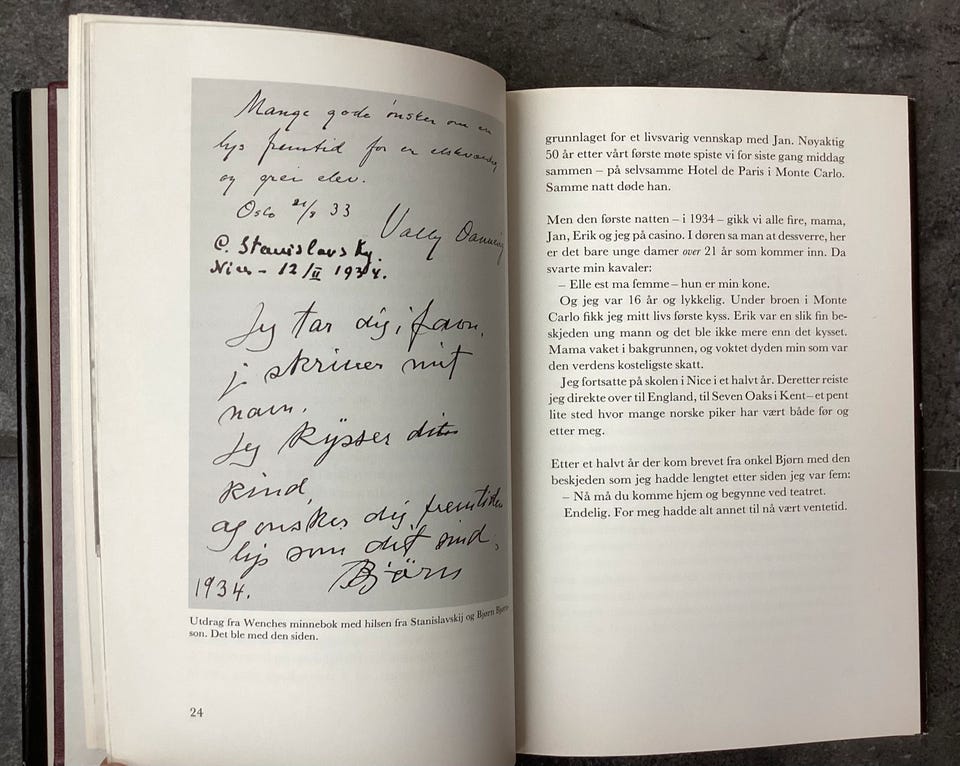 Mange gode ønsker om en
lys fremtid for en elskværdig
og grei elev.
Oslo 21/8 33
Vally
C. Stanislavsky.
Nice - 12/II 1934.
Jeg tar dig i favn,
j skriver mit
navn.
Jeg kÿsser
kind,
og ønsker dig fremtiden
lys som dit sind,
1934. Bjørn
Utdrag fra Wenches minnebok med hilsen fra Stanislavskij og Bjørn Bjørn-
son. Det ble med den siden.
24
grunnlaget for et livsvarig vennskap med Jan. Nøyaktig
50 år etter vårt første møte spiste vi for siste gang middag
sammen – på selvsamme Hotel de Paris i Monte Carlo.
Samme natt døde han.
Men den første natten – i 1934 – gikk vi alle fire, mama,
Jan, Erik og jeg på casino. I døren sa man at dessverre, her
er det bare unge damer over 21 år som kommer inn. Da
svarte min kavaler:
– Elle est ma femme – hun er min kone.
Og jeg var 16 år og lykkelig. Under broen i Monte
Carlo fikk jeg mitt livs første kyss. Erik var en slik fin be-
skjeden ung mann og det ble ikke mere enn det kysset.
Mama vaket i bakgrunnen, og voktet dyden min som var
den verdens kosteligste skatt.
Jeg fortsatte på skolen i Nice i et halvt år. Deretter reiste
jeg direkte over til England, til Seven Oaks i Kent – et pent
lite sted hvor mange norske piker har vært både før og
etter meg.
Etter et halvt år der kom brevet fra onkel Bjørn med den
beskjeden som jeg hadde lengtet etter siden jeg var fem:
– Nå må du komme hjem og begynne ved teatret.
Endelig. For meg hadde alt annet til nå vært ventetid.